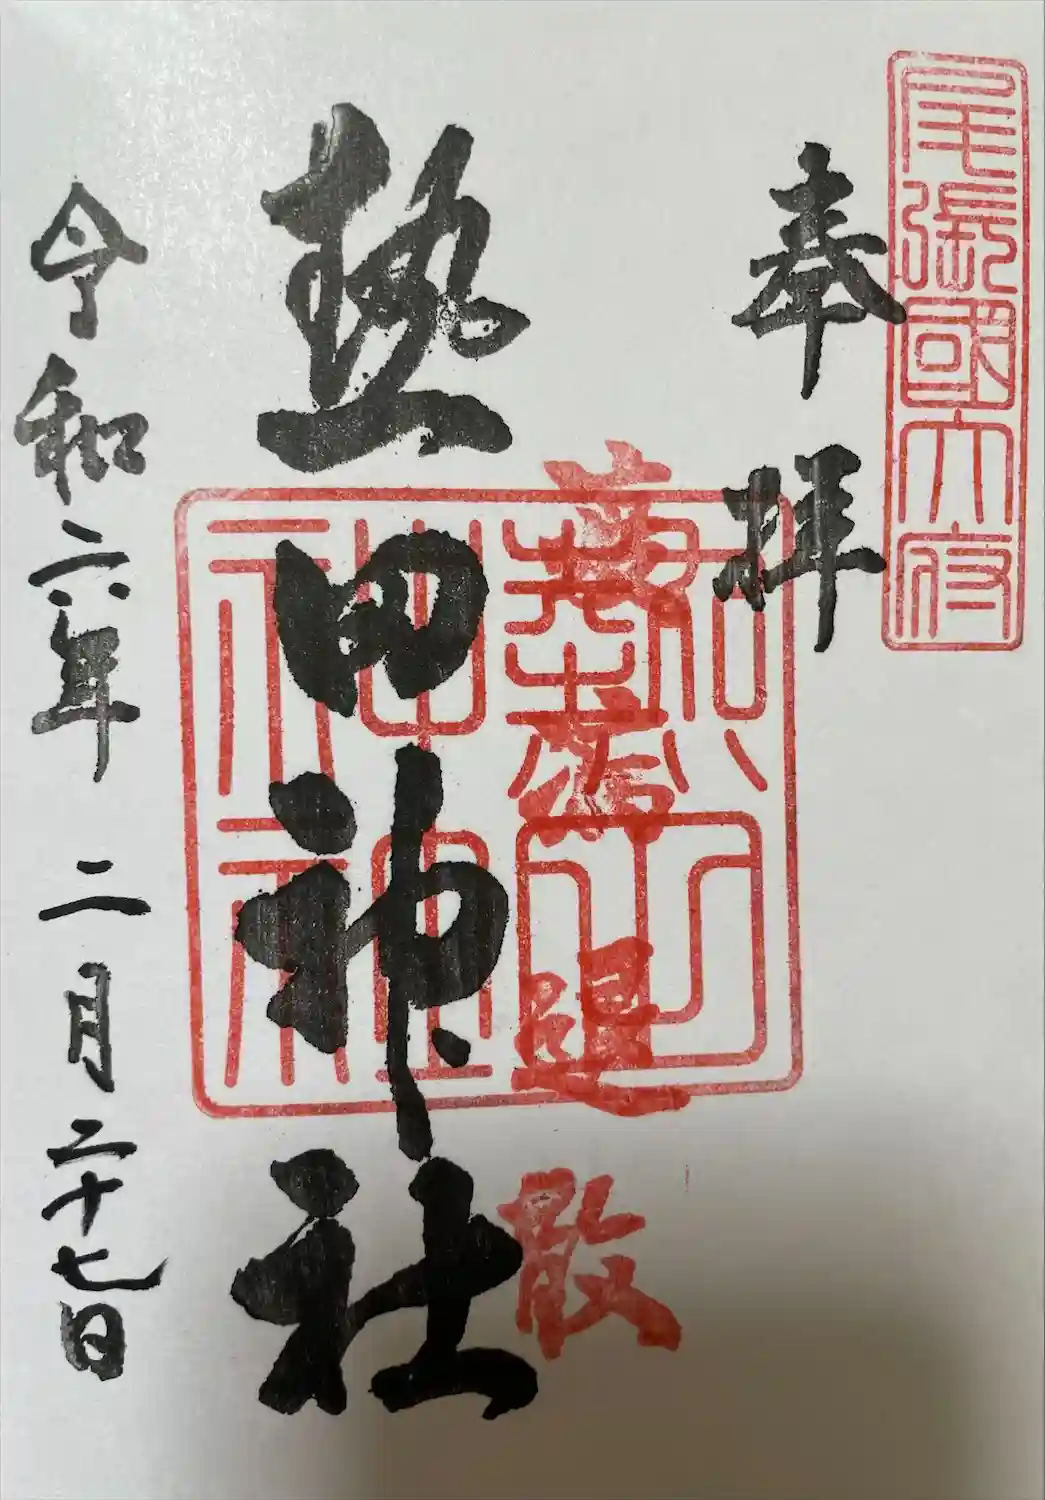 尾張國大府
奉拝
退散
熱田神社
熱田神社
令和六年 二月二十七日